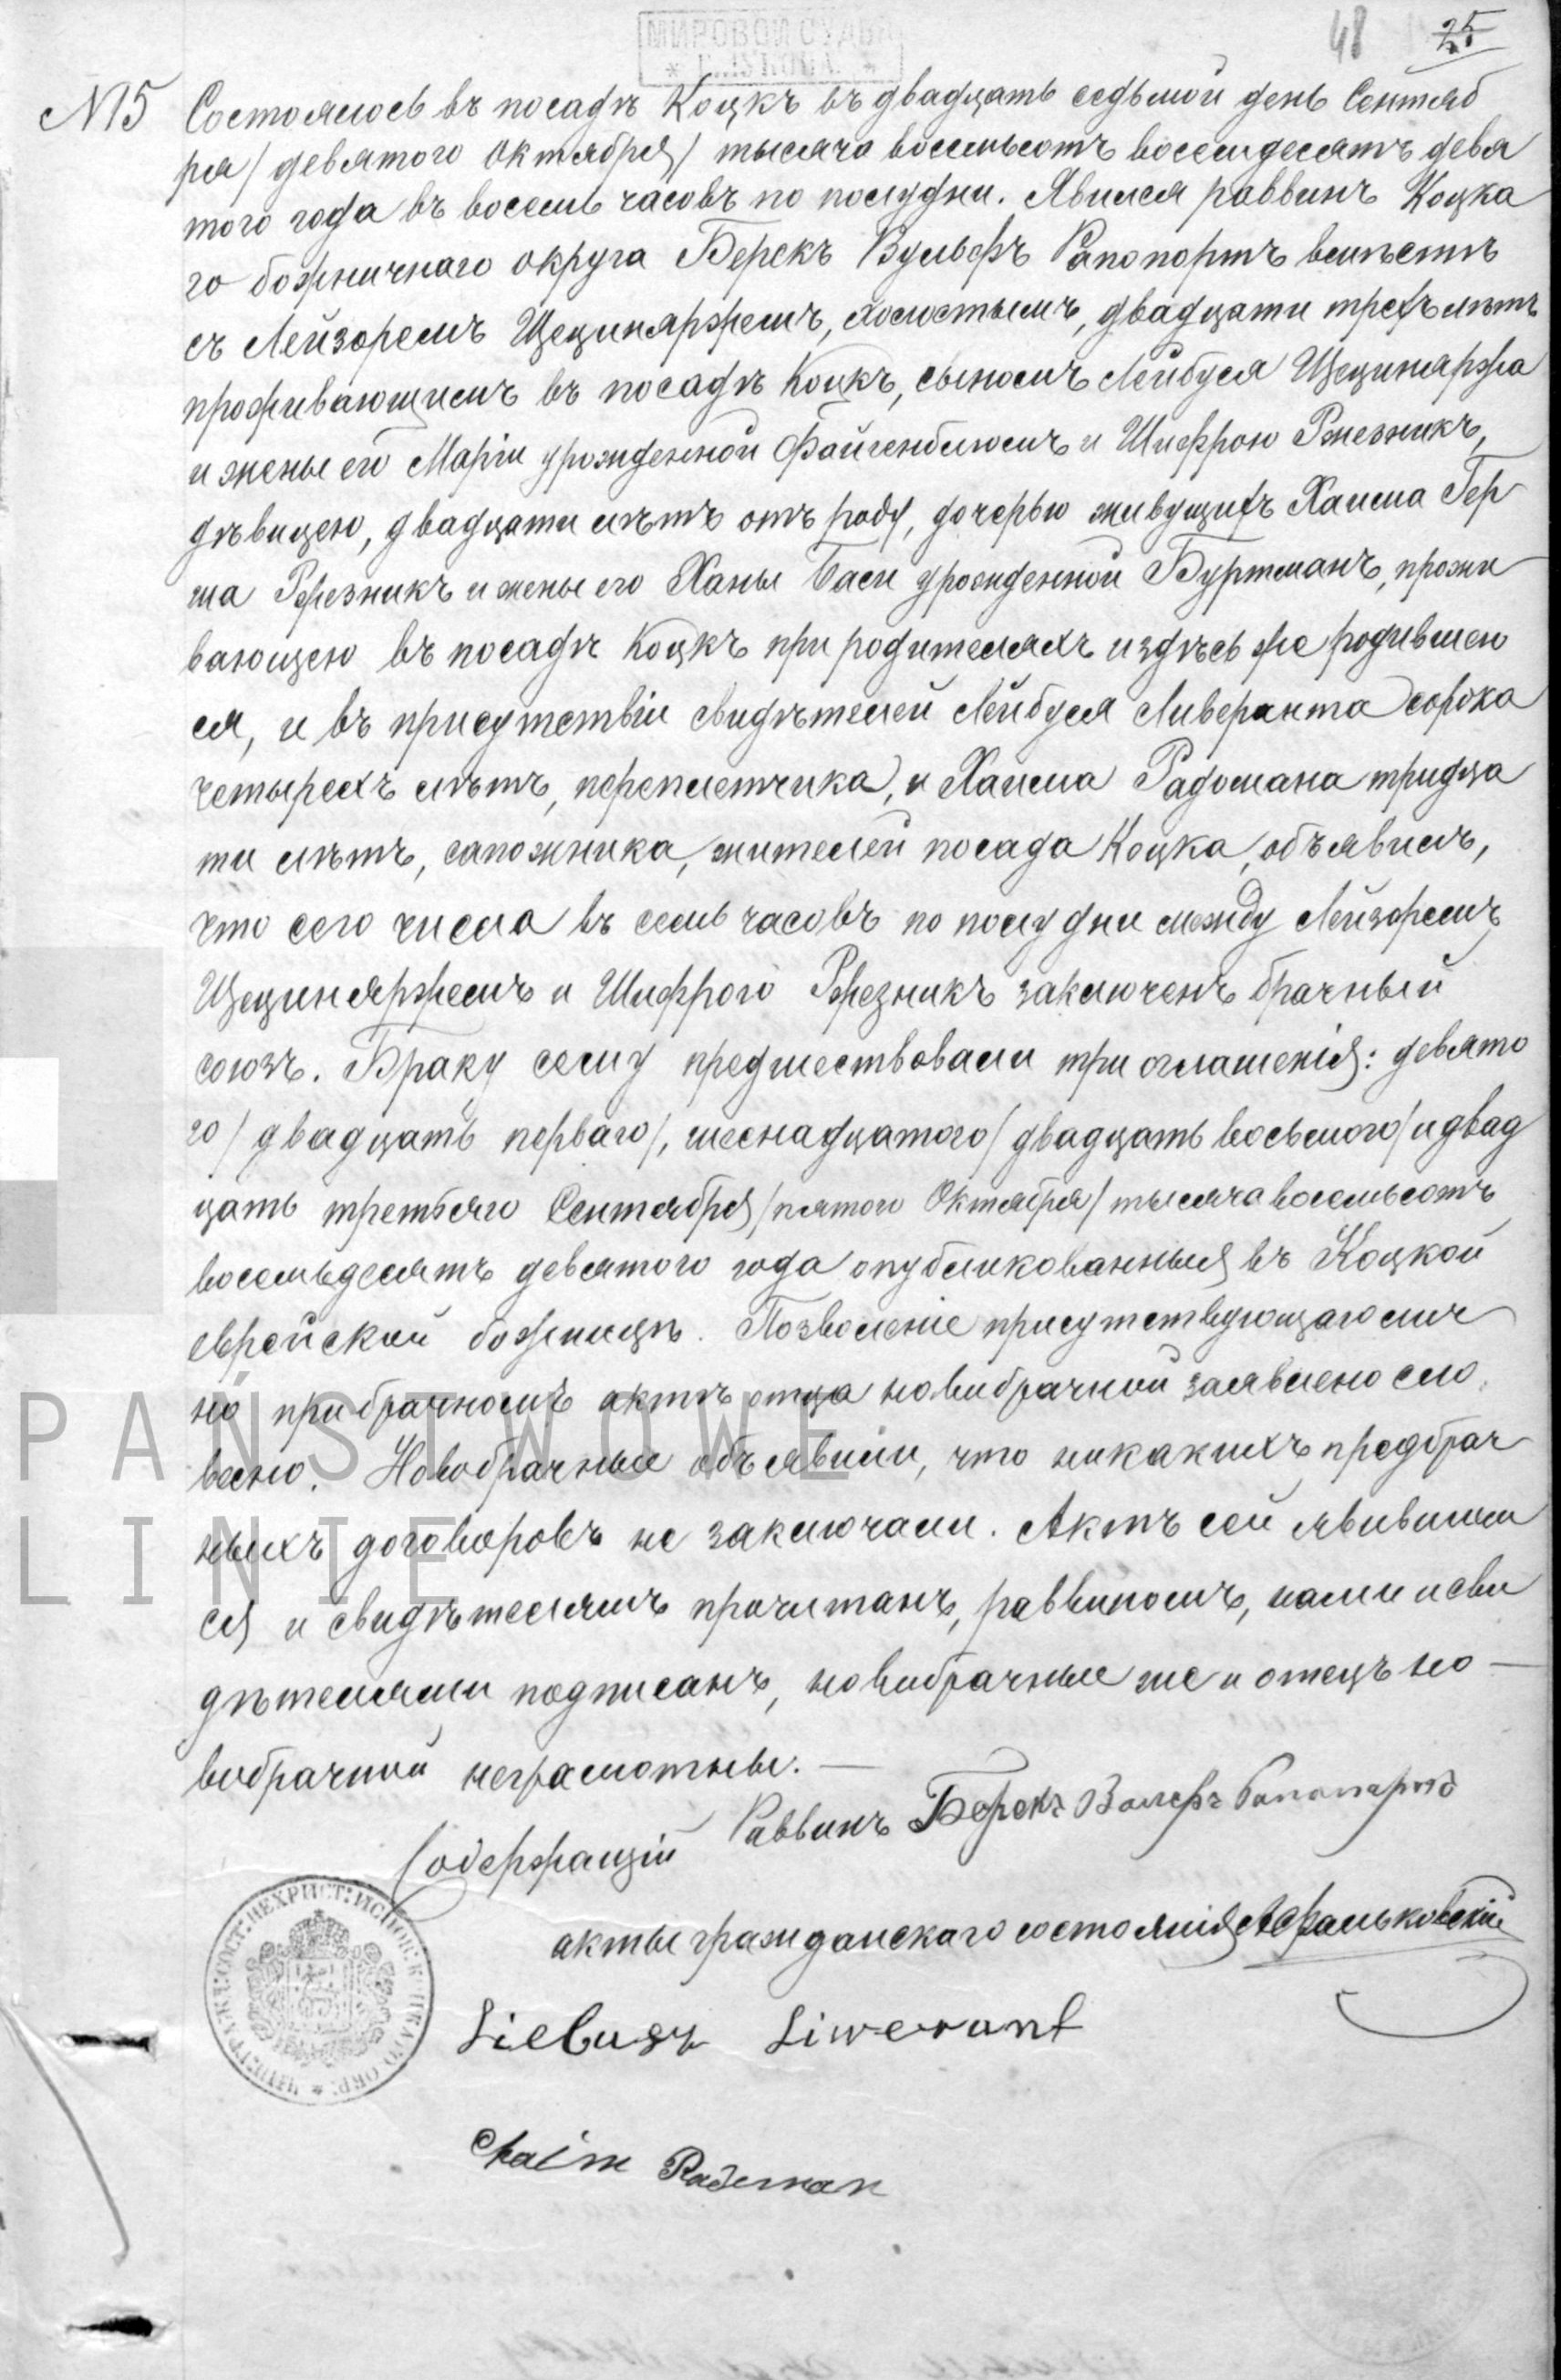 МИРОВОЙ СУДЬЯ
48 25
№15 Состоялось въ посадѣ Коцкъ въ двадцать седьмой день Сентяб
ря / девятого Октября / тысяча восемьсотъ восемдесятъ девя
того года въ восемь часовъ по полудни. Явился раввинъ Коцка
го божничнаго округа Берекъ Вульфъ Рапопортъ вмѣстѣ
съ Лейзоремъ Щециняржемъ, холостымъ, двадцати трехъ лѣтъ
проживающимъ въ посадѣ Коцкъ, сыномъ Лейбуся Щециняржа
и жены его Маріи урожденной Файгенблюмъ и Шифрою Ржезникъ,
дѣвицею, двадцати лѣтъ отъ роду, дочерью живущихъ Хаима Гер
ша Ржезникъ и жены его Ханы Баси урожденной Буртманъ, прожи
вающею въ посадѣ Коцкъ при родителяхъ и здѣсь же родившею
ся, и въ присутствіи свидѣтелей Лейбуся Ливеранта сорока
четырехъ лѣтъ, переплетчика, и Хаима Радомана тридца
ти лѣтъ, сапожника, жителей посада Коцка, объявилъ,
что сего числа въ семь часовъ по полудни между Лейзоремъ
Щециняржемъ и Шифрою Ржезникъ заключенъ брачный
союзъ. Браку сему предшествовали три оглашенія: девято
го / двадцать перваго /, шеснадцатого / двадцать восьмого / и двад
цать третьяго Сентября / пятого Октября / тысяча восемьсотъ
восемьдесятъ девятого года опубликованныя въ Коцкой
еврейской божницѣ. Позволеніе присутствующаго лич
но при брачномъ актѣ отца новобрачной заявлено сло
весно. Новобрачные объявили, что никакихъ предбрач
ныхъ договоровъ не заключали. Актъ сей явившим
ся и свидѣтелямъ прочитанъ, раввиномъ, нами и сви
дѣтелями подписанъ, новобрачные же и отецъ но
вобрачной неграмотны. —
Раввинъ Берекъ Вольфъ Рапопортъ
Содержащій
акты гражданскаго состоянія
Liebusz Liwerant
Chaim Radoman
PAŃSTWOWE
LINIE